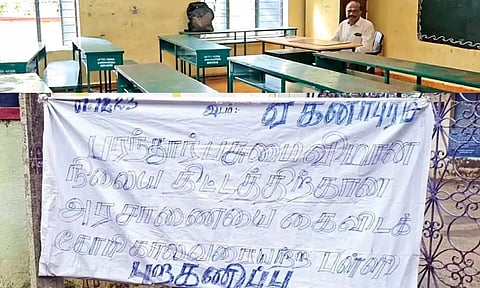 இடம்: ஏகனாபுரம்
பரந்தூர் பசுமை விமான
நிலைய திட்டத்திற்கான
அரசாணையை கைவிடக்
கோரி காலவரையற்ற பள்ளி
புறகணிப்பு